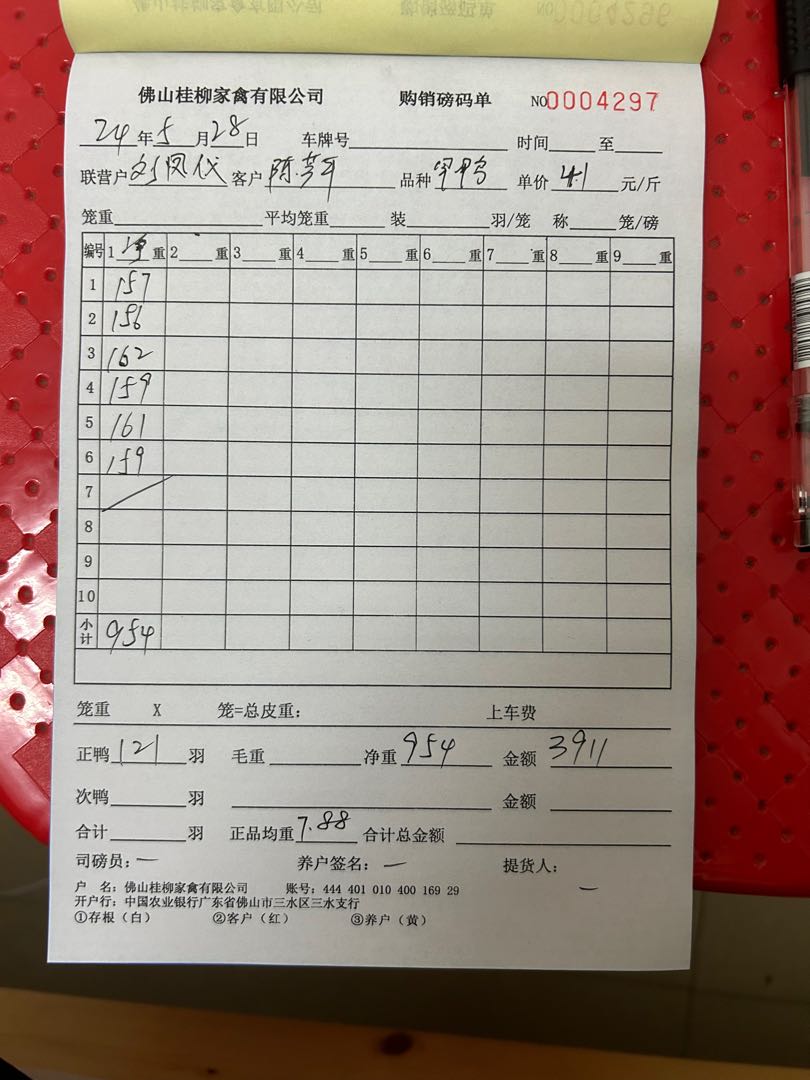 佛山桂柳家禽有限公司 购销磅码单 NO0004297
24年5月28日 车牌号 时间 至
联营户 刘凤代 客户 陈 品种 鸭 单价 4.1 元/斤
笼重 平均笼重 装 羽/笼 称 笼/磅
编号 1 净 重 2 重 3 重 4 重 5 重 6 重 7 重 8 重 9 重
1 157
2 156
3 162
4 159
5 161
6 159
7
8
9
10
小计 954
笼重 X 笼=总皮重: 上车费
正鸭 121 羽 毛重 净重 954 金额 3911
次鸭 羽 金额
合计 羽 正品均重 7.88 合计总金额
司磅员: 一 养户签名: 一 提货人: 一
户 名: 佛山桂柳家禽有限公司 账号: 444 401 010 400 169 29
开户行: 中国农业银行广东省佛山市三水区三水支行
①存根（白） ②客户（红） ③养户（黄）